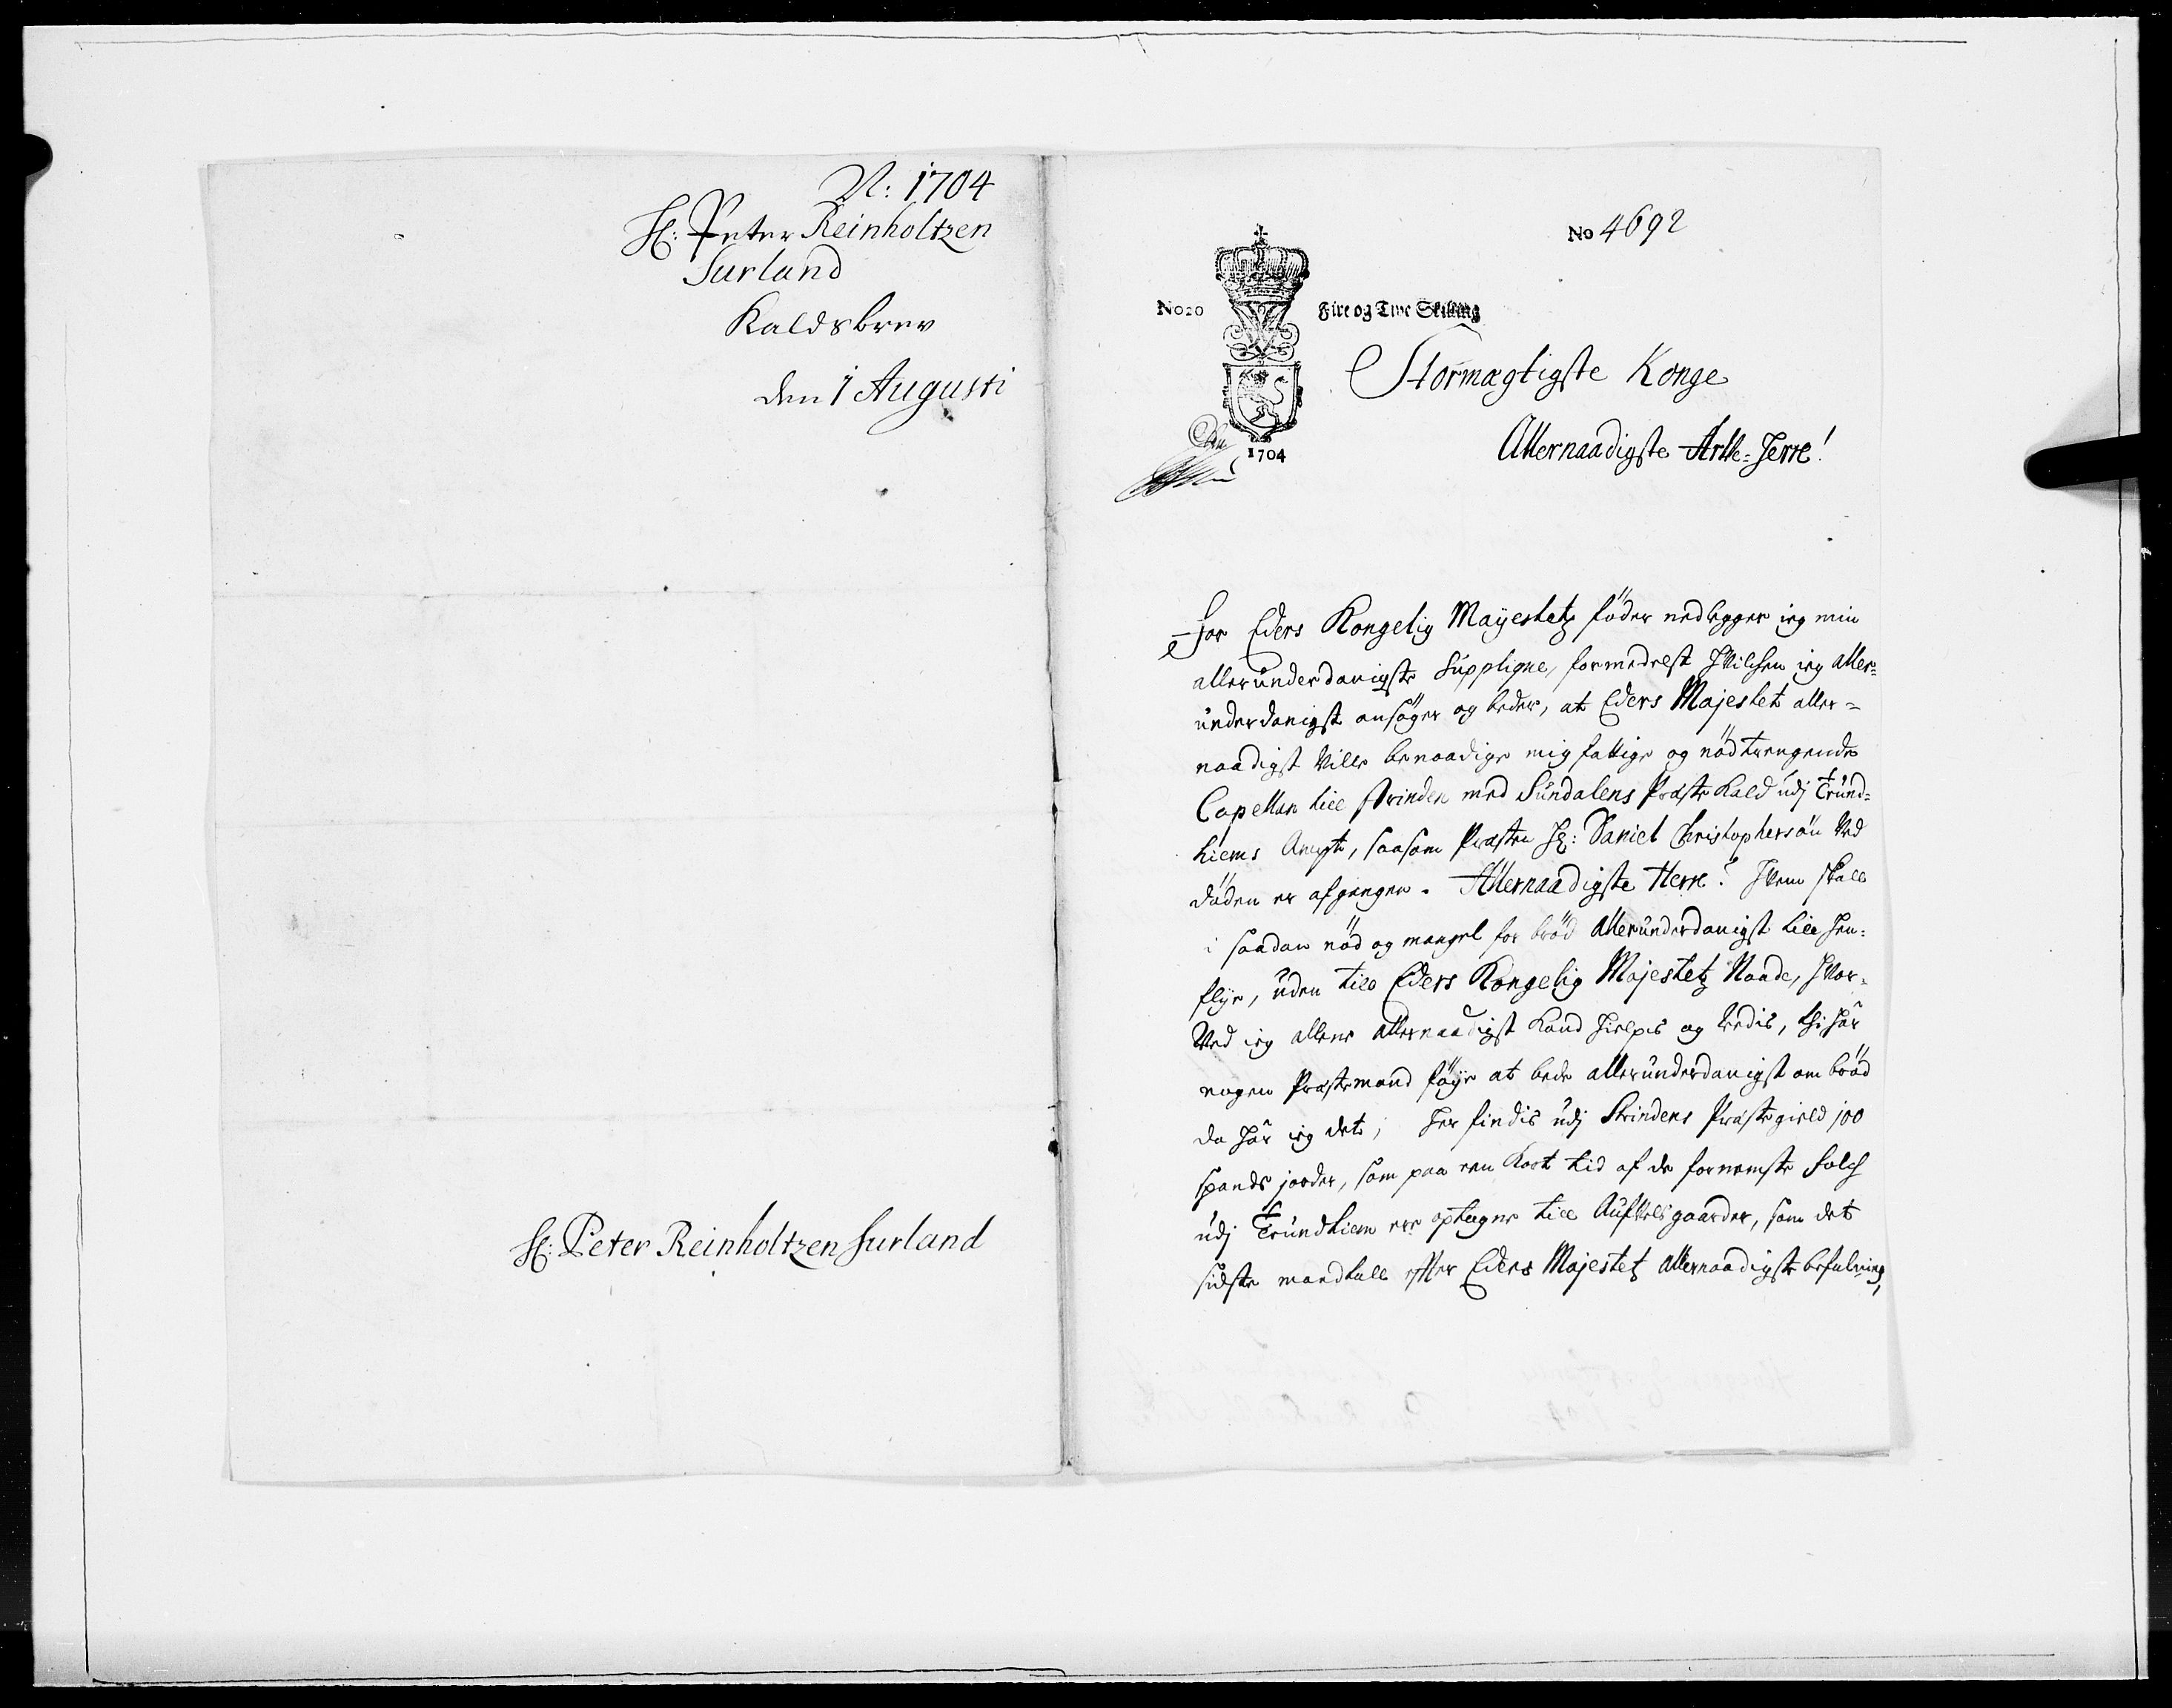 A: 1704
Hr: Peter Reinholtzen
Surland
Kaldsbrev
den 1 Augusti
Hr: Peter Reinholtzen Surland
No 4692
No 20
Fire og Tive Skilling
1704
Stormægtigste Konge
Allernaadigste Arffve-Herre!
For Eders Kongelig Mayestetz föder nedlegger ieg min
allerunderdanigste Supplique, formedelst Hvilchen ieg aller=
underdanigst ansöger og beder, at Eders Majestet aller=
naadigst ville benaadige mig fattige og nödtrengende
Capellan till Strinden med Sundalens Præste Kald udj Trund=
hiems Ampt, saasom Præsten Hr: Daniel Christophersön ved
döden er afgangen. Allernaadigste Herre! Hven skall
i saadan nöd og mangel for bröd allerunderdanigst till hen=
flye, uden till Eders Kongelig Majestetz Naade, Hvor=
ved ieg allene allernaadigst kand hielpis og redis, thi har
nogen Præstemand föye at bede allerunderdanigst om bröd
da har ieg det; Her findis udj Strindens Præstegield 100
spands jorder, som paa een kort tid af de fornemste folch
udj Trundhiem ere optagne till Aufvelsgaarder, som det
sidste mandtall effter Eders Majestetz allernaadigste befalning,